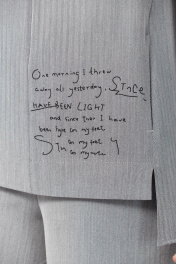 One morning I threw
away als yesterday. SInCe
HAVE BEEN LIGHT
and since then I have
been light on my feet
on my feet
on my